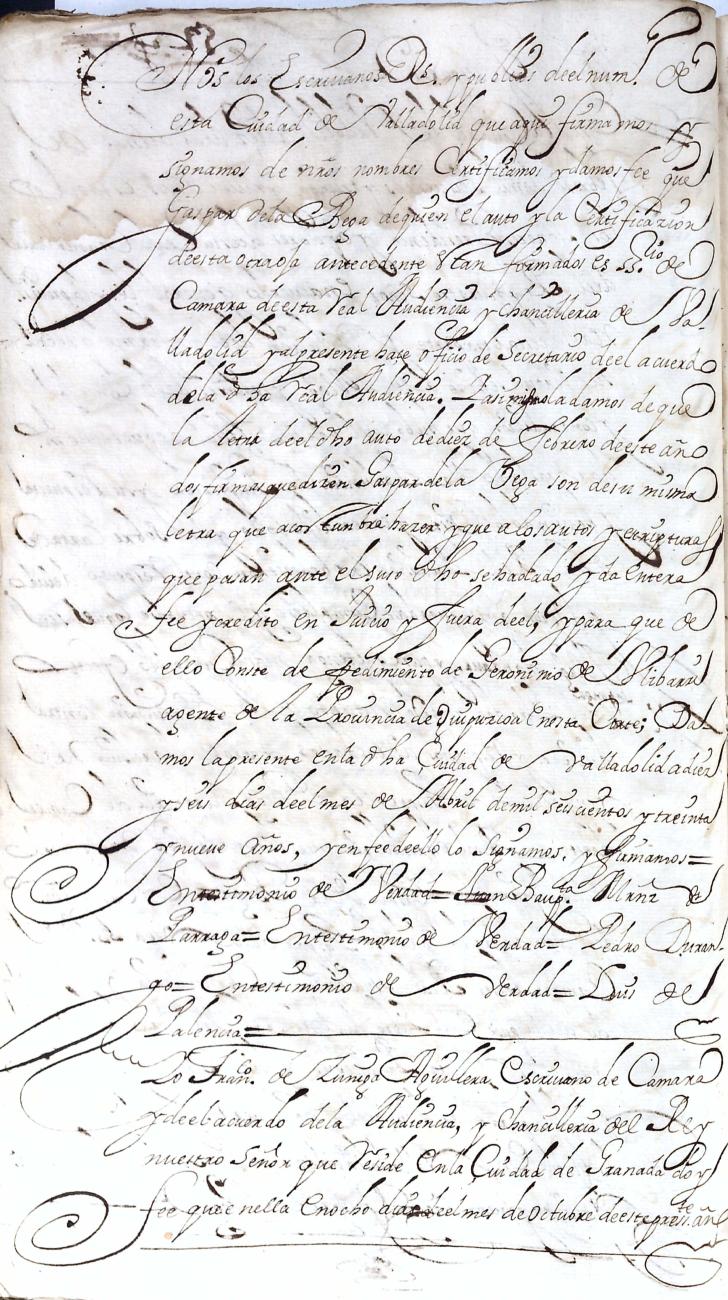 Nos los Escrivanos Rs. y publicos deel num.º de
esta Ciudad de Valladolid que aqui firmamos y
signamos de nros nombres Certificamos y damos fee que
Gaspar dela Bega de quien el auto y la Certificazion
de esta otra oja antecedente stan formados es ss.rio de
Camara de esta Real Audiencia y Chancilleria de Va-
lladolid y al presente haze officio de Secretario deel acuerdo
de la dha Real Audiencia. Y asimismo la damos de que
la letra deel dho auto de diez de Febrero de este año
dos firmas que dizen Gaspar dela Vega son de su misma
letra que acostumbra hazer y que a los autos y escripturas
que pasan ante el suso dho se ha dado y da entera
fee y credito en Juicio y fuera deel, y para que de
ello Conste de pedimiento de Geronimo de Ulibarri
agente de la Provincia de Guipuzcoa en esta Corte; Da-
mos la presente en la dha Ciudad de Valladolid a diez
y seis dias deel mes de Abril de mil seiscientos y treinta
y nueve años, y en fee de ello lo signamos. y firmamos=
En testimonio de Verdad= Juan Baup.ta Mrnz de
Parraga= En testimonio de Verdad= Pedro Duran-
go= En testimonio de verdad= Luis de
Palencia=
Yo Fran.co de Zuniga Aguillera Escrivano de Camara
y deel acuerdo dela Audiencia, y Chancilleria del Rey
nuestro Señor que Reside en la Ciudad de Granada doy
fee que en ella en ocho dias deel mes de Octubre de este press.te añ